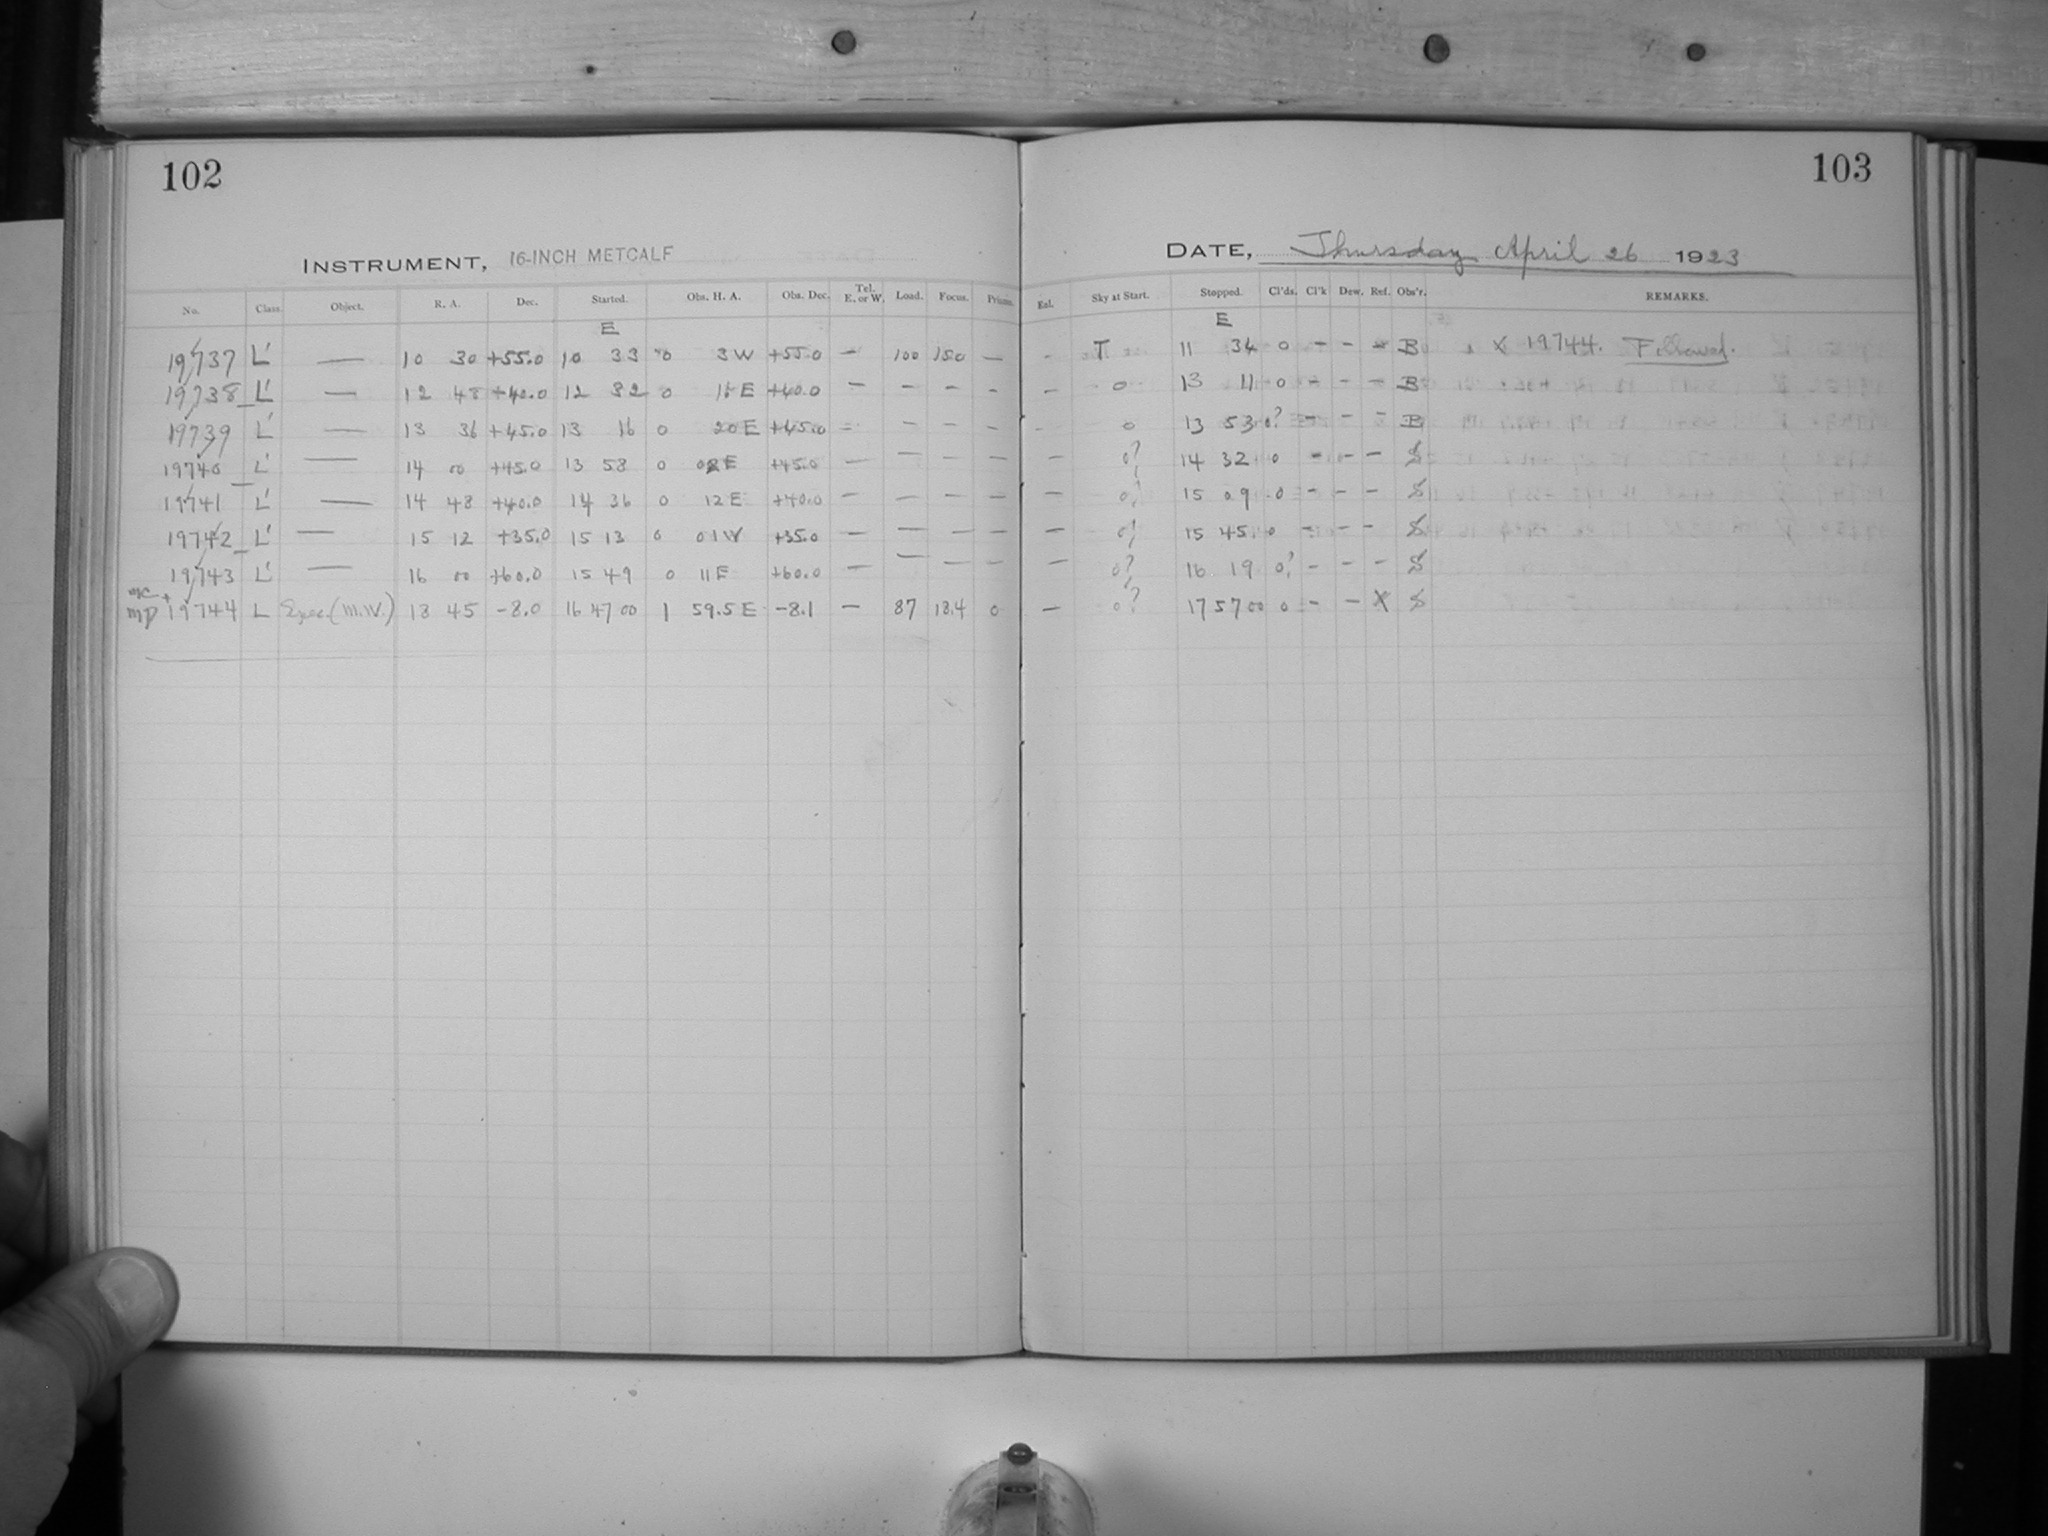 102
INSTRUMENT, 16-INCH METCALF
No. Class. Object. R. A. Dec. Started. Obs. H. A. Obs. Dec. Tel. E. or W. Load. Focus. Prism.
E
19737 L' — 10 30 +55.0 10 33 0 3 W +55.0 — 100 15.0 —
19738 L' — 12 48 +40.0 12 32 0 16 E +40.0 — — — —
19739 L' — 13 36 +45.0 13 16 0 20 E +45.0 — — — —
19740 L' — 14 00 +45.0 13 58 0 02 E +45.0 — — — —
19741 L' — 14 48 +40.0 14 36 0 12 E +40.0 — — — —
19742 L' — 15 12 +35.0 15 13 0 01 W +35.0 — — — —
19743 L' — 16 00 +60.0 15 49 0 11 E +60.0 — — — —
mc +
mp 19744 L Spec (M.W.) 18 45 -8.0 16 47 00 1 59.5 E -8.1 — 87 18.4 0
103
DATE, Thursday April 26 1923
Sky at Start. Stopped. Cl'ds. Cl'k Dew. Ref. Obs'r. REMARKS.
E
- T 11 34 0 - - - B x 19744. Followed.
- 0 13 11 0 - - - B
- 0 13 53 0? - - - B
- 0? 14 32 0 - - - S
- 0? 15 09 0 - - - S
- 0? 15 45 0 - - - S
- 0? 16 19 0? - - - S
- 0? 17 57 00 0 - - X S